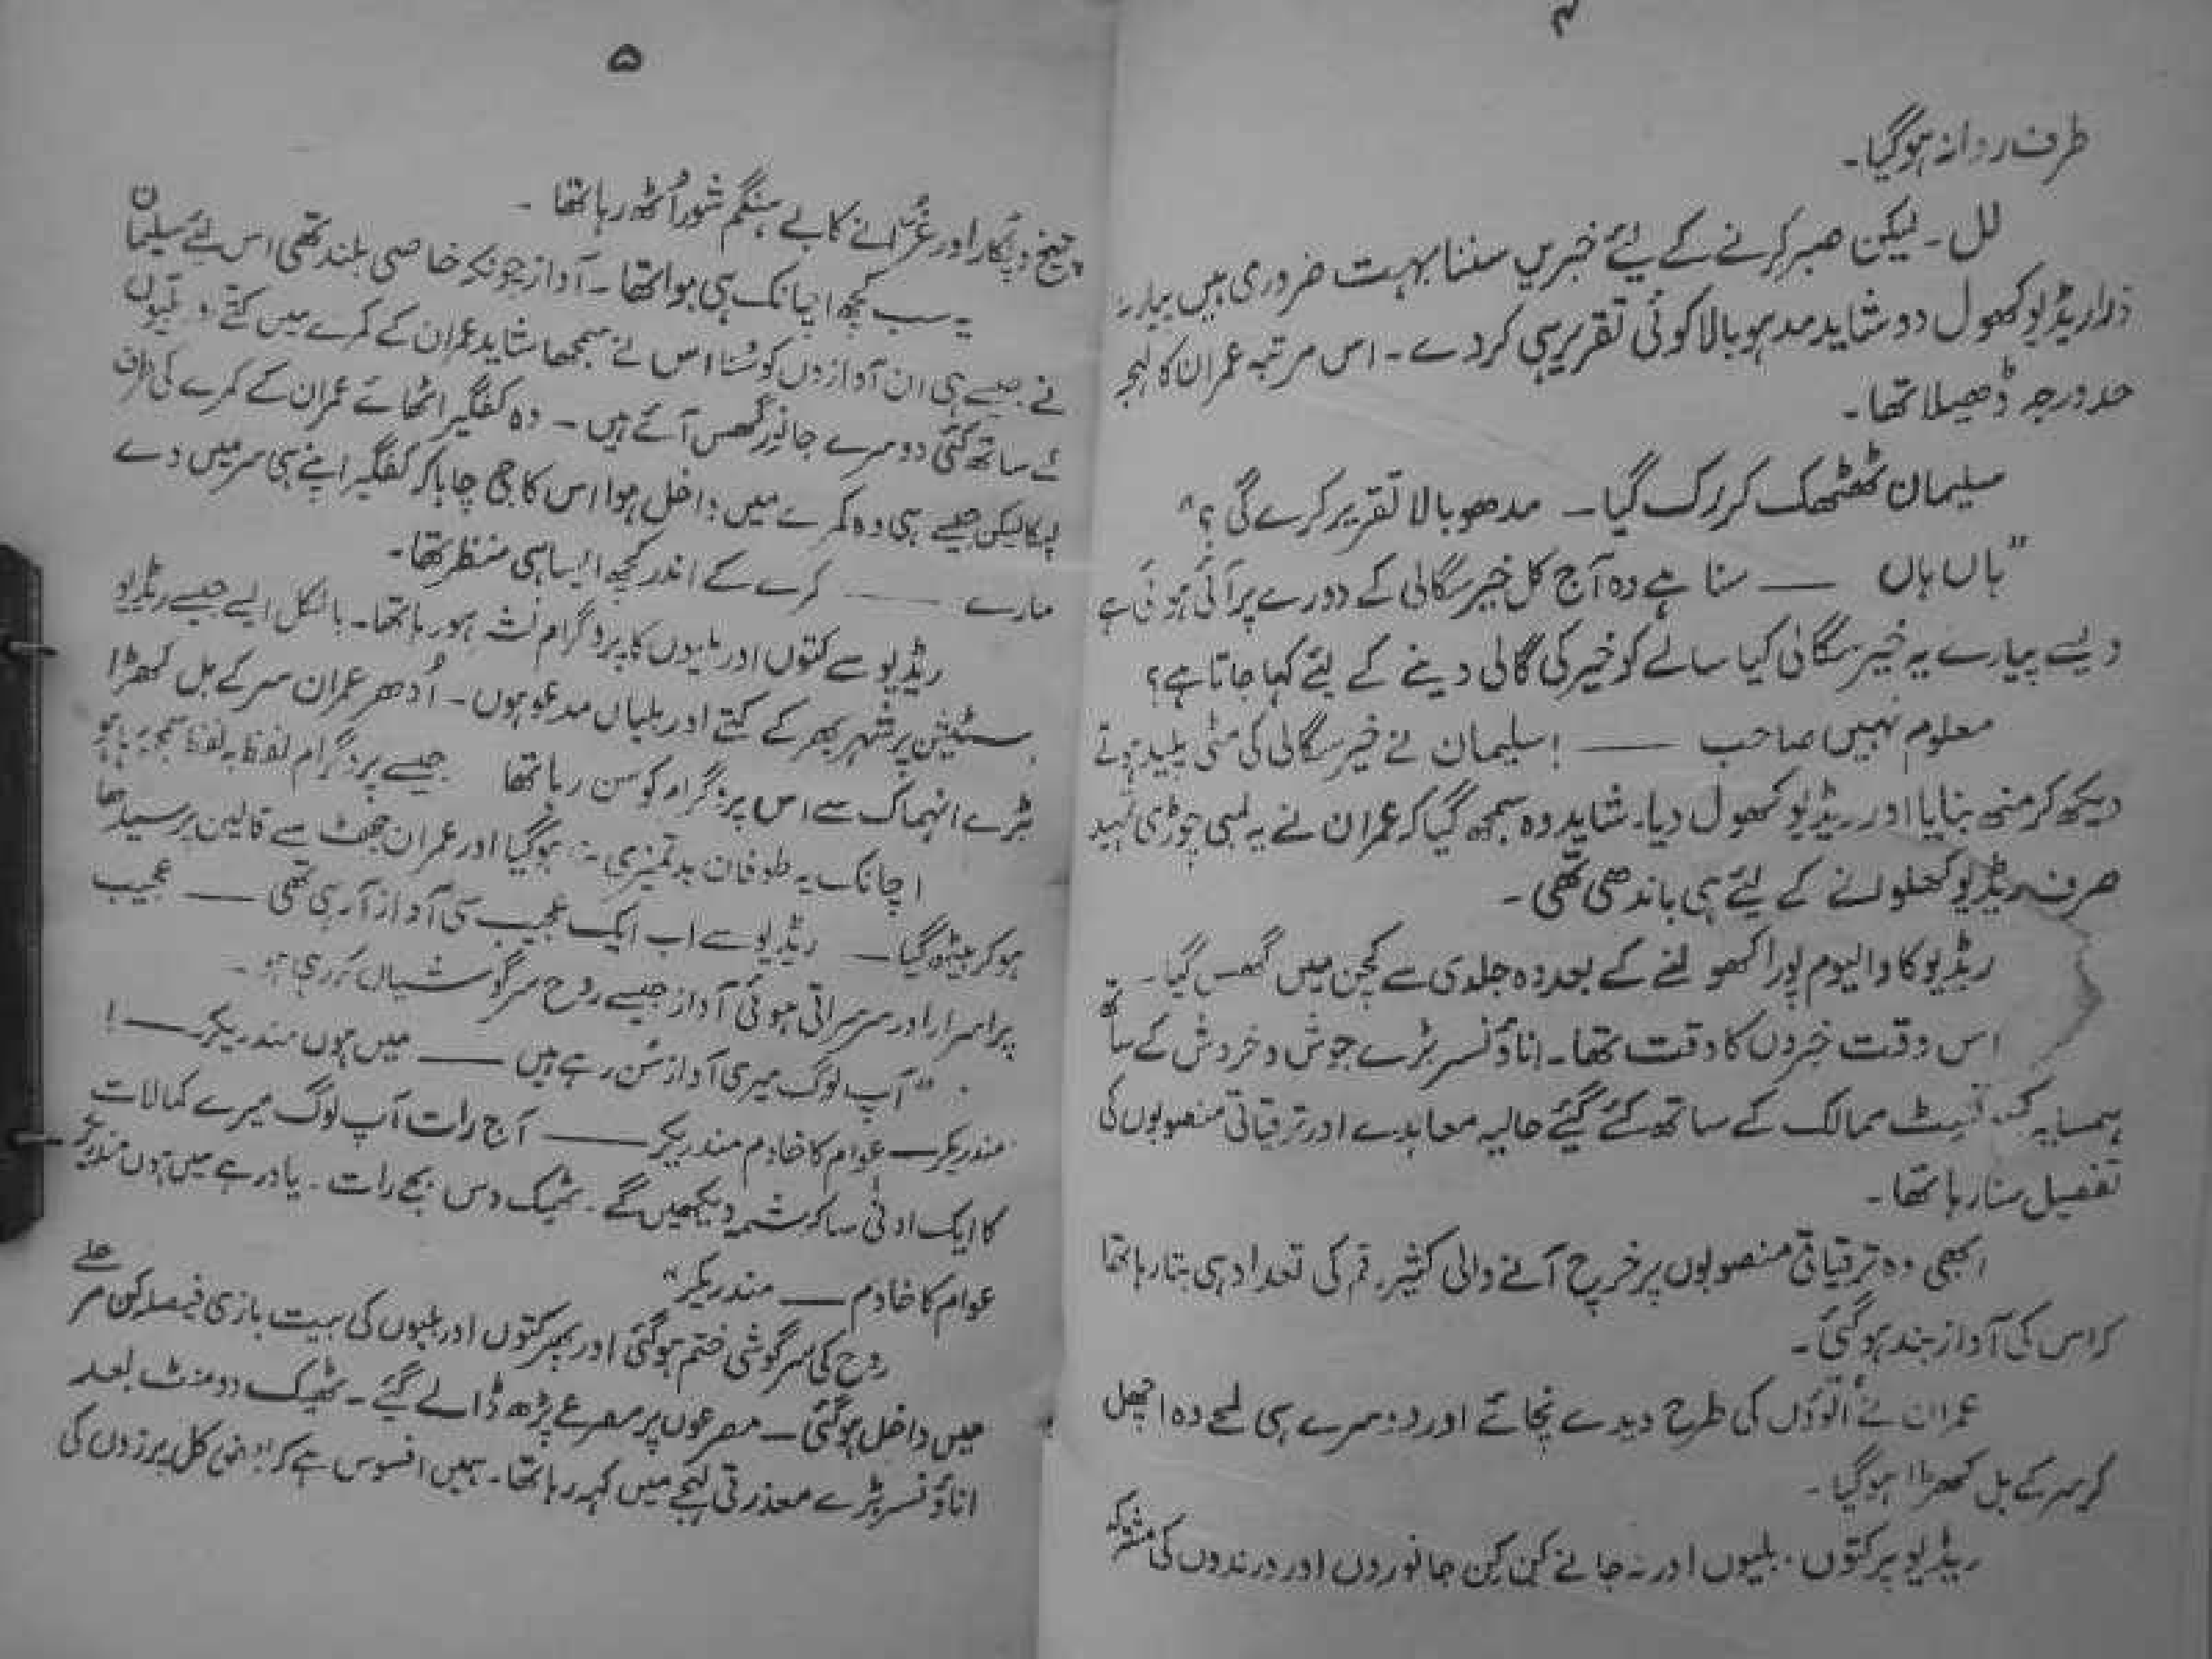 ۴
طرف روانہ ہوگیا۔
لل۔ لیکن صبر کرنے کے لیئے خبریں سننا بہت ضروری ہیں پیارے
ذرا ریڈیو کھول دو شاید مدہوبالا کوئی تقریر ہی کردے۔ اس مرتبہ عمران کا لہجہ
حد درجہ ڈھیلا تھا۔
سلیمان ٹھٹھک کر رک گیا۔ مدھوبالا تقریر کرے گی؟"
"ہاں ہاں ــــ سنا ہے وہ آج کل خیر سگالی کے دورے پر آئی ہوئی ہے
ویسے پیارے یہ خیر سگالی کیا سالے کو خیر کی گالی دینے کے لیئے کہا جاتا ہے؟
معلوم نہیں صاحب ــــ ! سلیمان نے خیر سگالی کی مٹی پلید ہوتے
دیکھ کر منھ بنایا اور ریڈیو کھول دیا۔ شاید وہ سمجھ گیا کہ عمران نے یہ لمبی چوڑی تمہید
صرف ریڈیو کھلوانے کے لیئے ہی باندھی تھی۔
ریڈیو کا والیوم پورا کھولنے کے بعد وہ جلدی سے کچن میں گھس گیا۔
اس وقت خبروں کا وقت تھا۔ اناؤنسر بڑے جوش و خروش کے ساتھ
ہمسایہ ممالک کے ساتھ کئے گیئے حالیہ معاہدے اور ترقیاتی منصوبوں کی
تفصیل سنا رہا تھا۔
ابھی وہ ترقیاتی منصوبوں پر خرچ آنے والی کثیر رقم کی تعداد ہی بتا رہا تھا
کہ اس کی آواز بند ہوگئی۔
عمران نے الوؤں کی طرح دیدے نچائے اور دوسرے ہی لمحے وہ اچھل
کر سر کے بل کھڑا ہوگیا۔
ریڈیو پر کتوں۔ بلیوں اور نہ جانے کن کن جانوروں اور درندوں کی مشترکہ
۵
چیخ و پکار اور غرانے کا بے ہنگم شور اُٹھ رہا تھا۔
یہ سب کچھ اچانک ہی ہوا تھا۔ آواز چونکہ خاصی بلند تھی اس لیئے سلیمان
نے جیسے ہی ان آوازوں کو سُنا اس نے سمجھا شاید عمران کے کمرے میں کتے و بلیوں
کے ساتھ کئی دوسرے جانور گھس آئے ہیں۔ وہ کفگیر اٹھائے عمران کے کمرے کی طرف
لپکا لیکن جیسے ہی وہ کمرے میں داخل ہوا اس کا جی چاہا کہ کفگیر اپنے ہی سر میں دے
مارے ــــ کمرے کے اندر کچھ ایسا ہی منظر تھا۔
ریڈیو سے کتوں اور بلیوں کا پروگرام نشر ہو رہا تھا۔ بالکل ایسے جیسے ریڈیو
سٹیشن پر شہر بھر کے کتے اور بلیاں مدعو ہوں۔ اُدھر عمران سر کے بل کھڑا
بڑے انہماک سے اس پروگرام کو سن رہا تھا جیسے پروگرام لفظ بہ لفظ سمجھ رہا ہو
اچانک یہ طوفان بدتمیزی بند ہوگیا اور عمران جھٹ سے قالین پر سیدھا
ہوکر بیٹھ گیا۔ ریڈیو سے اب ایک عجیب سی آواز آ رہی تھی ــــ عجیب
پراسرار اور سرسراتی ہوئی آواز جیسے روح سرگوشیاں کر رہی ہو۔
"آپ لوگ میری آواز سُن رہے ہیں ــــ میں ہوں مندریکر ــــ !
مندریکر ــــ عوام کا خادم مندریکر ــــ آج رات آپ لوگ میرے کمالات
کا ایک ادنیٰ سا کرشمہ دیکھیں گے۔ ٹھیک دس بجے رات۔ یاد رہے میں ہوں مندریکر
عوام کا خادم ــــ مندریکر"
روح کی سرگوشی ختم ہوگئی اور پھر کتوں اور بلیوں کی بیت بازی فیصلہ کن مرحلے
میں داخل ہوگئی۔ مصرعوں پر مصرعے پڑھ ڈالے گیئے۔ ٹھیک دو منٹ بعد
اناؤنسر بڑے معذرتی لہجے میں کہہ رہا تھا۔ ہمیں افسوس ہے کہ کل پرزوں کی